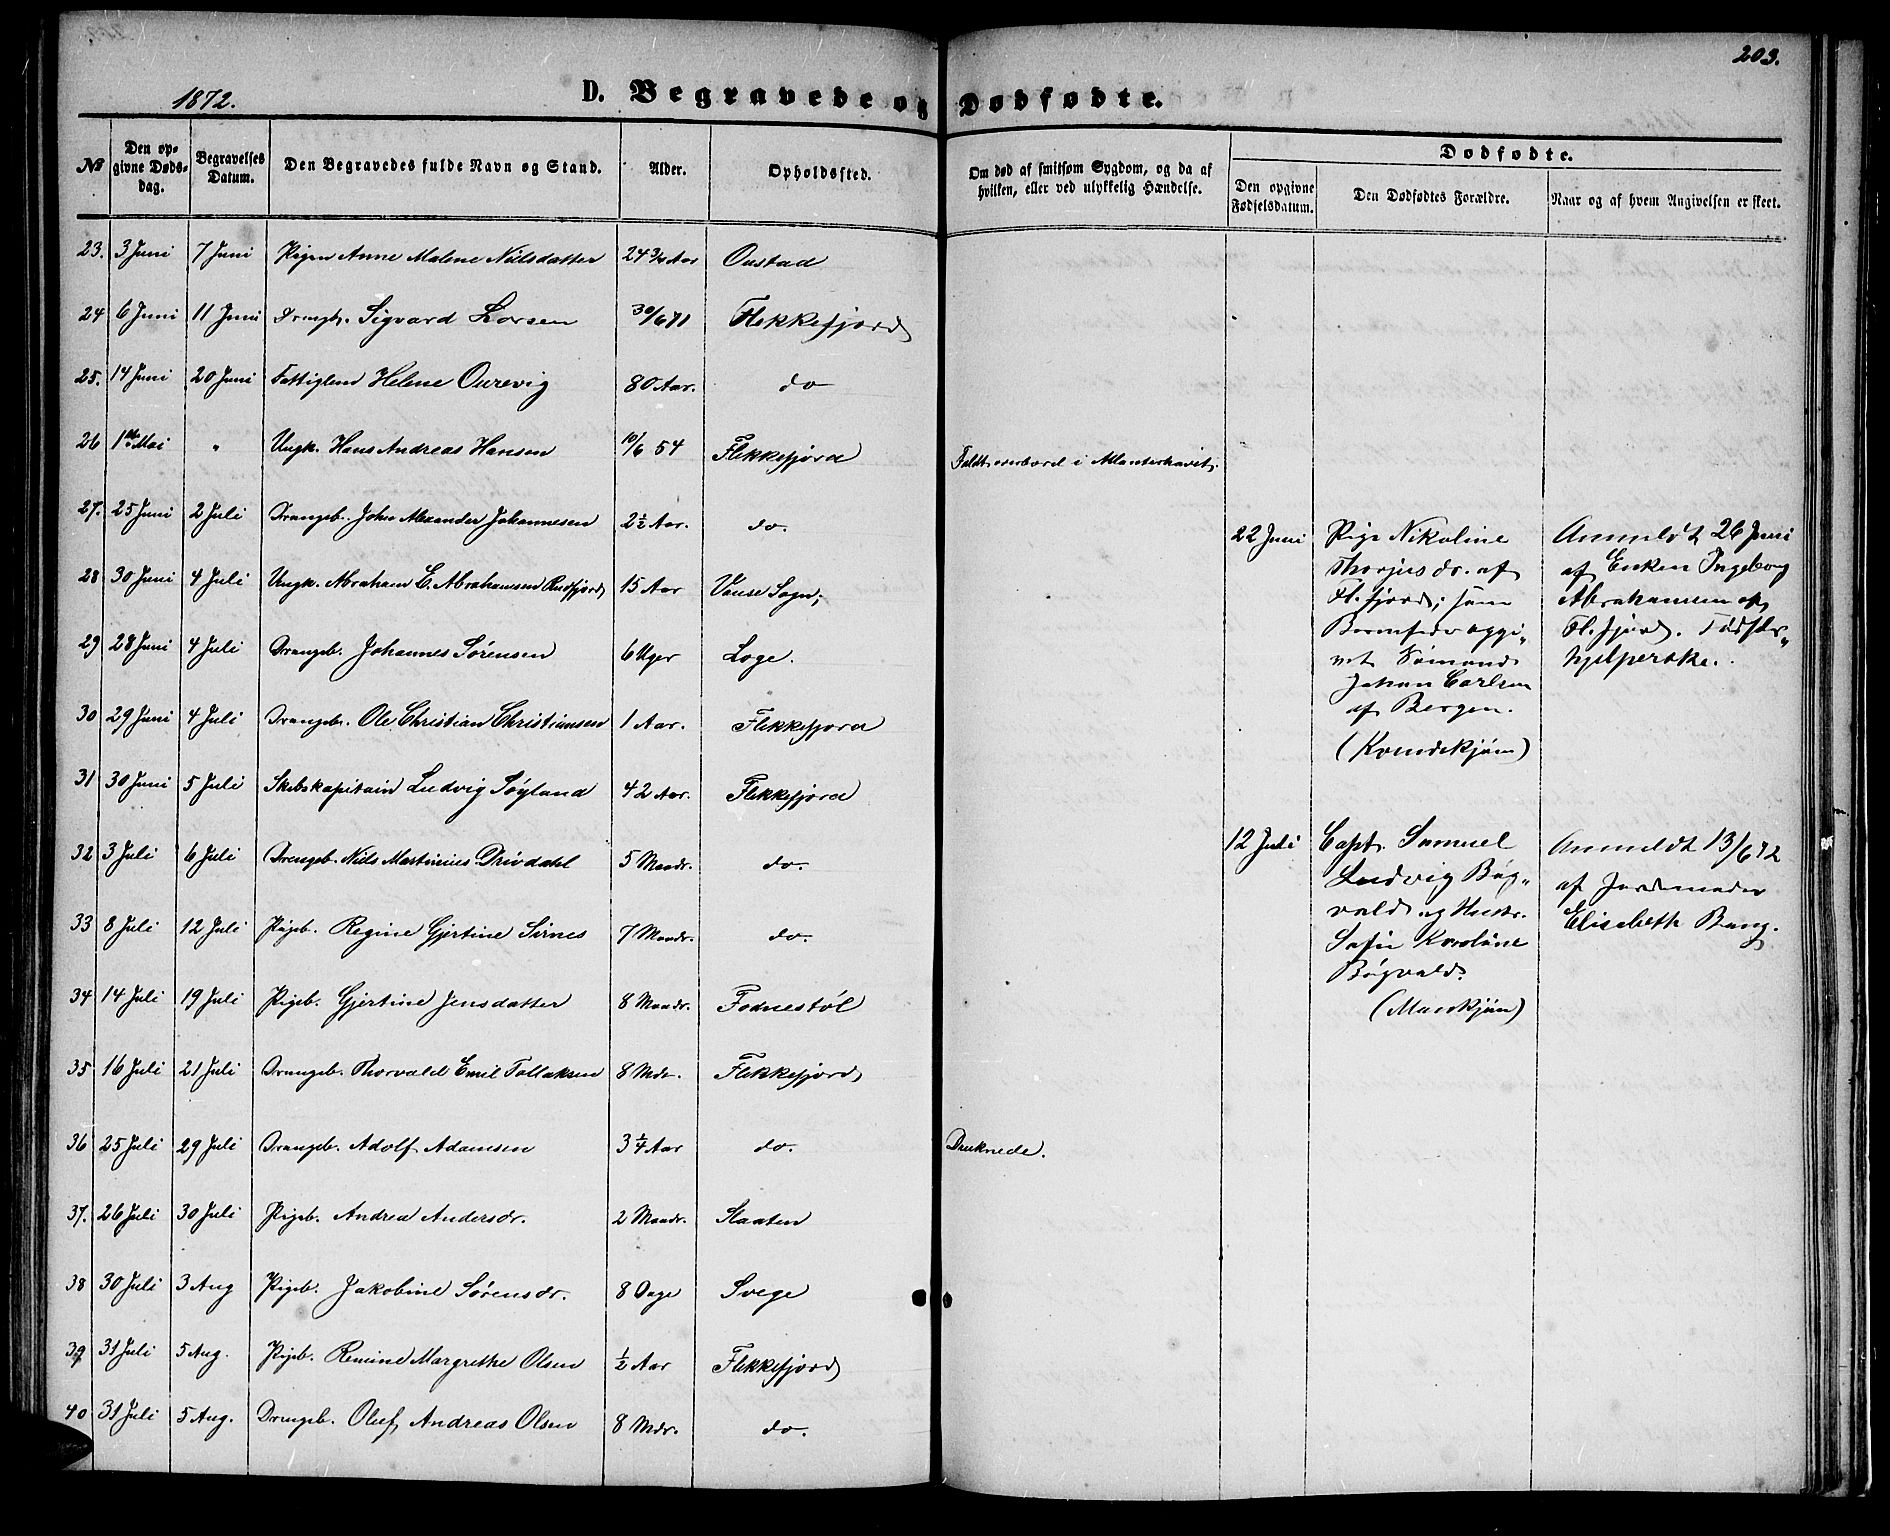 203.
1872.
D. Begravede og Dødfødte.
№
Den opgivne Dødsdag.
Begravelses Datum.
Den Begravedes fulde Navn og Stand.
Alder.
Opholdssted.
Om død af smitsom Sygdom, og da af hvilken, eller ved ulykkelig Hændelse.
Dødfødte.
Den opgivne Fødselsdatum.
Den Dødfødtes Forældre.
Naar og af hvem Angivelsen er skeet.
23. 3 Juni 7 Juni Pigen Anne Malene Nielsdatter 24 3/4 Aar Oustad
24 6 Juni 11 Juni Drengb. Sigvard Larsen 30/6 71 Flekkefjord
25. 14 Juni 20 Juni Fattiglem Helene Ourevig 80 Aar. do
26 1ste Mai " Ungk. Hans Andreas Hansen 10/6 54 Flekkefjord Faldt overbord i Atlanterhavet.
27. 25 Juni 2 Juli Drengeb. John Alexander Johannesen 2 1/2 Aar. do.
28 30 Juni 4 Juli Ungk. Abraham E. Abrahamsen Rudfjord 15 Aar Vanse Sogn;
29 28 Juni 4 Juli Drengeb. Johannes Sørensen 6 Uger Loge.
30 29 Juni 4 Juli Drengeb. Ole Christian Christiansen 1 Aar. Flekkefjord
31 30 Juni 5 Juli Skibskapitain Ludvig Søyland 42 Aar. Flekkefjord
32 3 Juli 6 Juli Drengeb. Niels Martinius Drivdahl 5 Maadr. do.
33 8 Juli 12 Juli Pigeb. Regine Gjertine Sirnes 7 Maadr. do.
34 14 Juli 19 Juli Pigeb. Gjertine Jensdatter 8 Maadr. Fodnestøl
35 16 Juli 21 Juli Drengeb. Thorvald Emil Tollaksen 8 Mdr. Flekkefjord
36 25 Juli 29 Juli Drengeb. Adolf Adamsen 3 1/4 Aar do. Druknede.
37. 26 Juli 30 Juli Pigeb. Andrea Andersdr. 2 Maadr. Slaaten
38 30 Juli 3 Aug Pigeb. Jakobine Sørensdr. 8 Dage Svege
39 31 Juli 5 Aug. Pigeb. Remine Margrethe Olsen 1/2 Aar Flekkefjord
40 31 Juli 5 Aug. Drengeb. Oluf Andreas Olsen 8 Mdr. do.
22 Juni
Pige Nikoline
Thorjusdr. af
Fl.fjord; som
Barnefader opgi-
vet Sømand
Johan Carlsen
af Bergen.
(Kvindekjøn)
Anmeldt 26 Juni
af Enken Ingeborg
Abrahamsen af
Fl.fjord. Fødsels-
hjelperske.
12 Juli
Capt. Samuel
Ludvig Bøg-
vald og Hustr.
Sofie Karoline
Bøgvald.
(Mandkjøn)
Anmeldt 13/6 72
af Jordemoder
Elisabeth Bang.